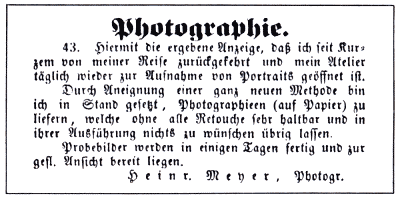 Photographie.
43. Hiermit die ergebene Anzeige, daß ich seit Kur=
zem von meiner Reise zurückgekehrt und mein Atelier
täglich wieder zur Aufnahme von Portraits geöffnet ist.
Durch Aneignung einer ganz neuen Methode bin
ich in Stand gesetzt, Photographieen (auf Papier) zu
liefern, welche ohne alle Retouche sehr haltbar und in
ihrer Ausführung nichts zu wünschen übrig lassen.
Probebilder werden in einigen Tagen fertig und zur
gefl. Ansicht bereit liegen.
Heinr. Meyer, Photogr.